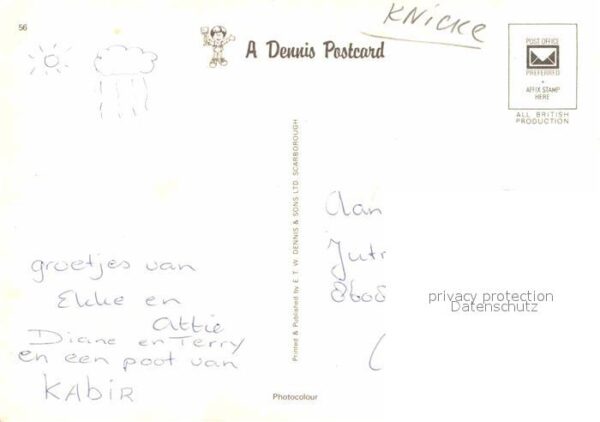 56
KNicKe
A Dennis Postcard
POST OFFICE
PREFERRED
AFFIX STAMP
HERE
ALL BRITISH
PRODUCTION
groetjes van
Ekke en
Attie
Diane en Terry
en een poot van
KABIR
Printed & Published by E. T. W. DENNIS & SONS LTD. SCARBOROUGH
Photocolour
Aan
privacy protection
Datenschutz